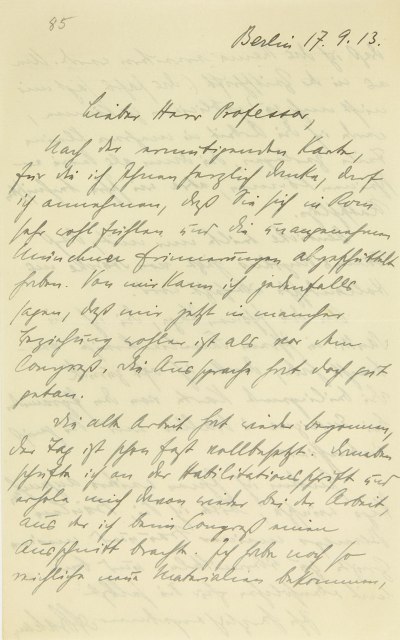 85
Berlin 17.9.13.
Lieber Herr Professor,
Nach der ermutigenden Karte,
für die ich Ihnen herzlich danke, darf
ich annehmen, daß Sie sich in Rom
sehr wohl fühlen und die unangenehmen
Münchner Erinnerungen abgeschüttelt
haben. Von mir kann ich jedenfalls
sagen, daß mir jetzt in mancher
Beziehung wohler ist als vor dem
Congreß. Die Aussprache hat doch gut
getan.
Die alte Arbeit hat wieder begonnen,
der Tag ist schon fast vollbesetzt. Daneben
schufte ich an der Habilitationsschrift und
erhole mich davon wieder bei der Arbeit
aus der ich beim Congreß einen
Ausschnitt brachte. Ich habe noch so
reichlich neue Materialien bekommen,